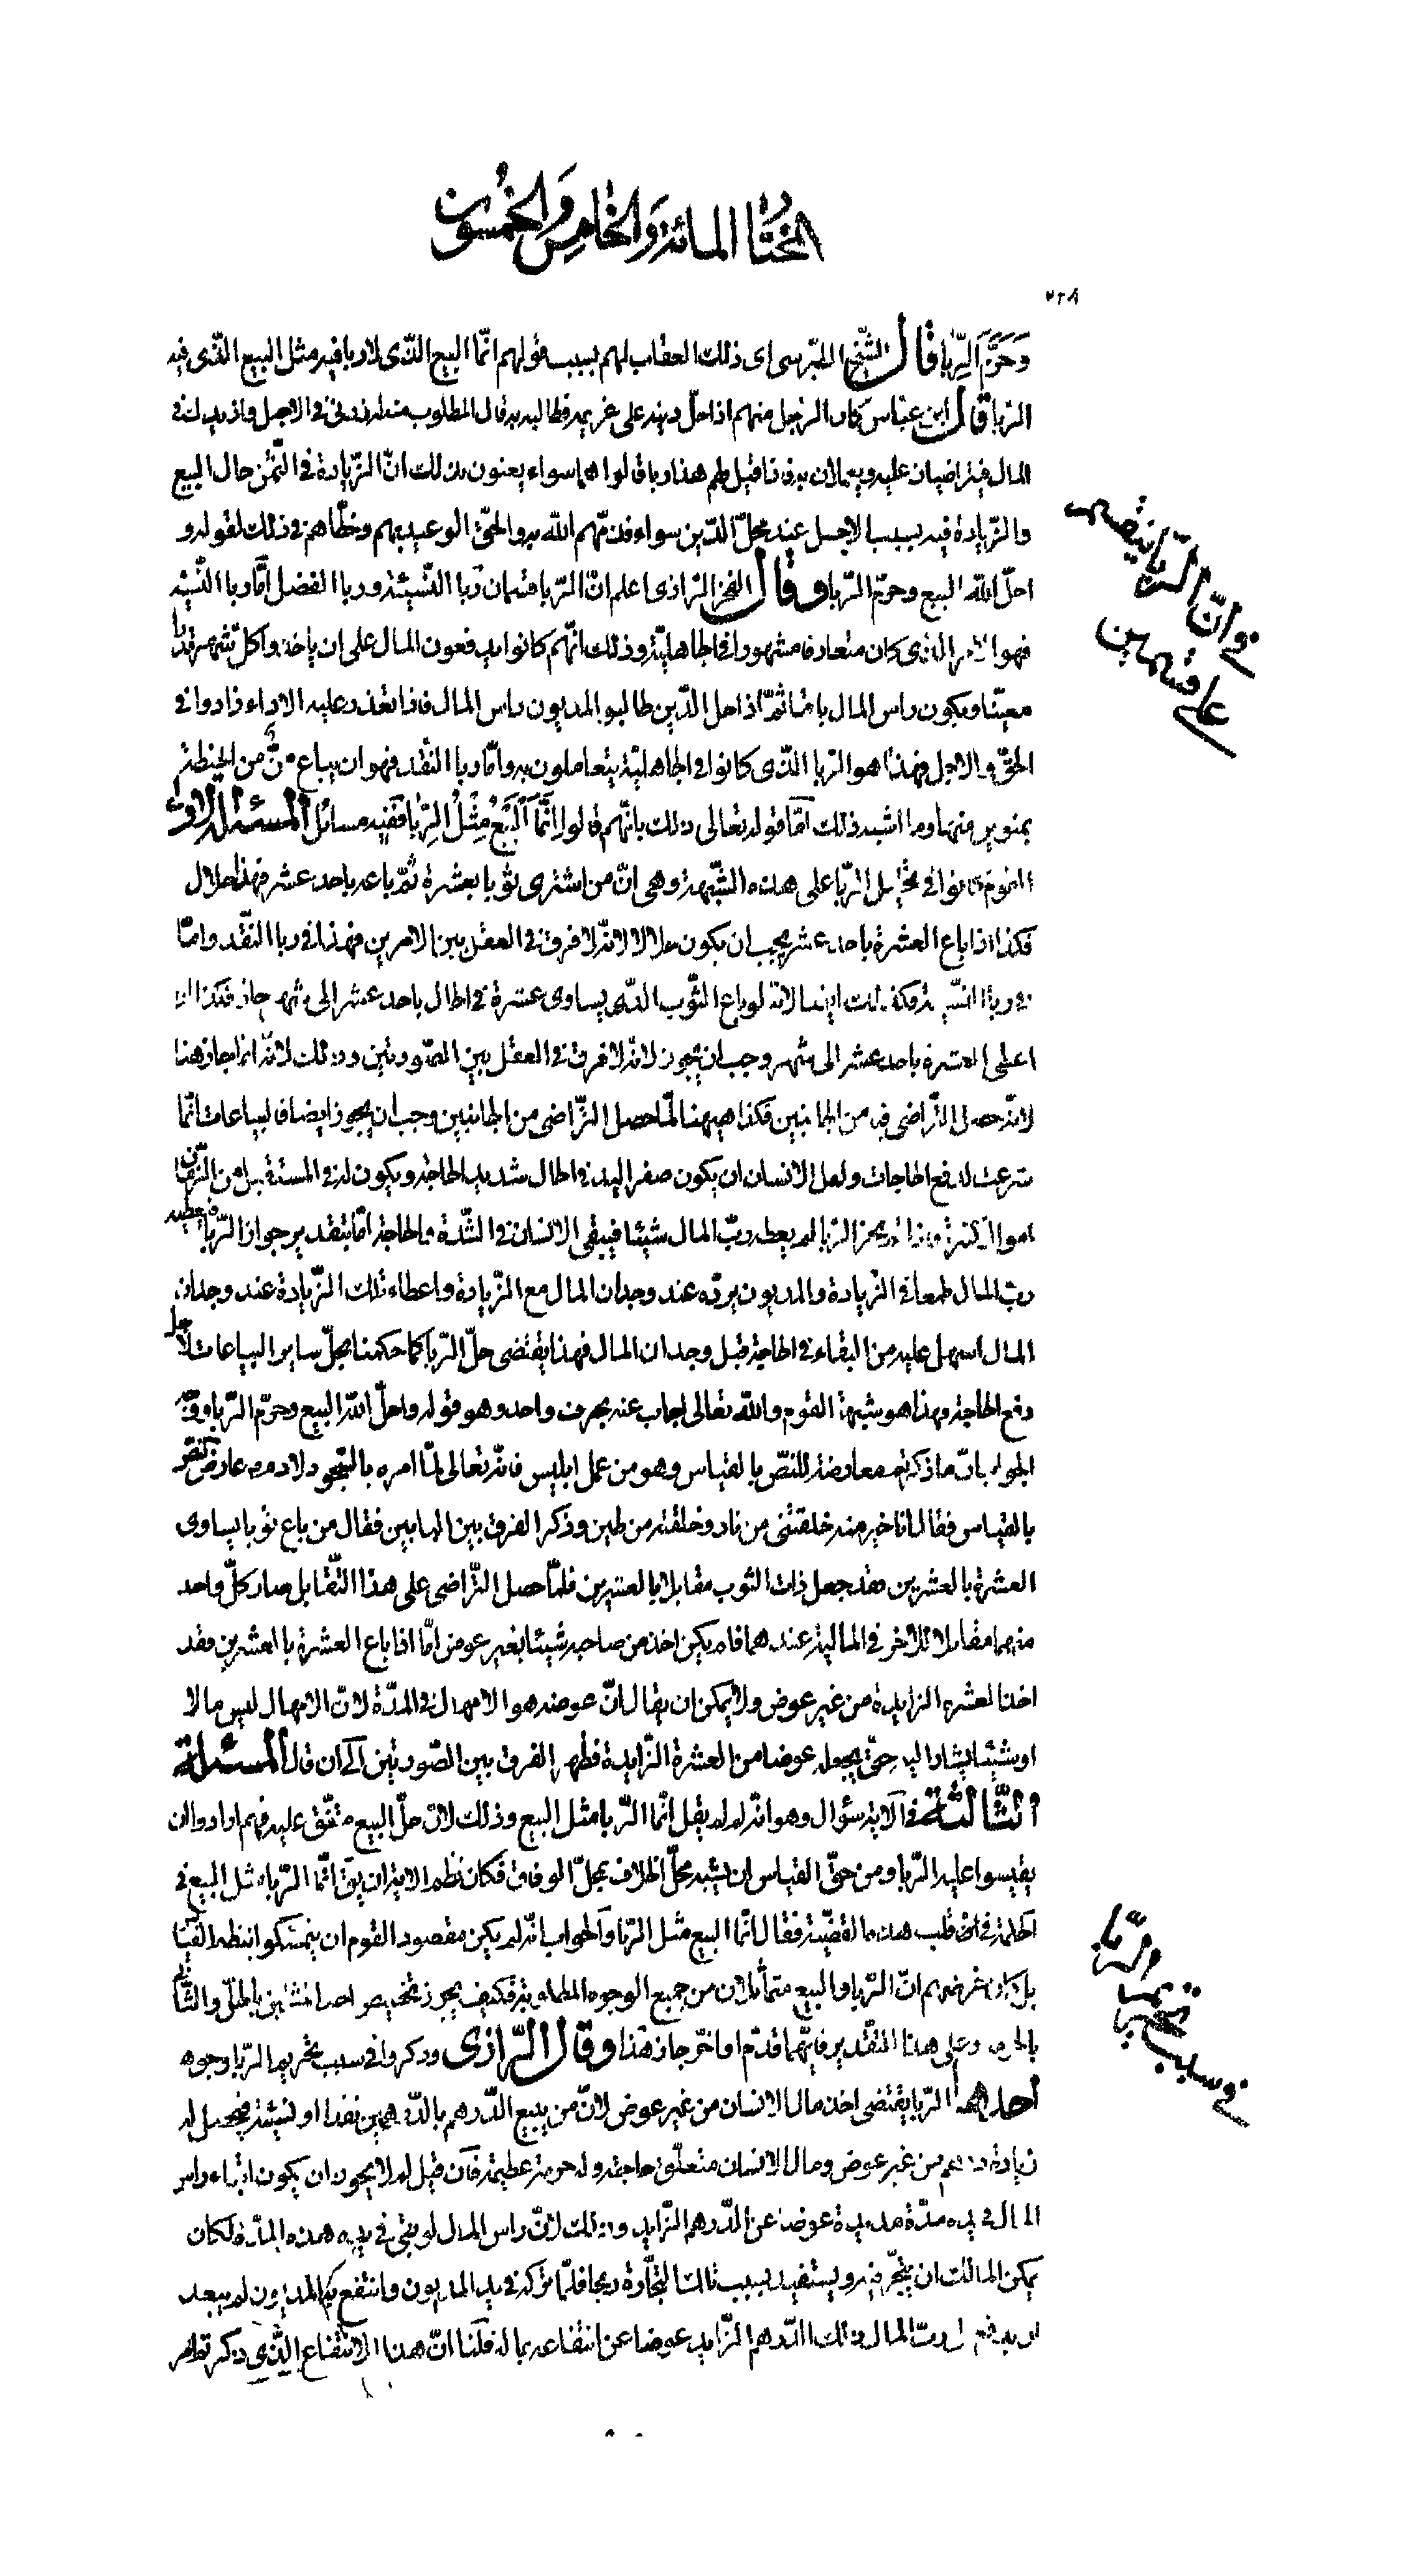 المختار المائة والخامس والخمسون
٢٢٨
وَحَرَّمَ الرِّبا قال الشّيخ الطبرسى اى ذلك العقاب لهم بسبب قولهم انّما البيع الّذى لا ربا فيه مثل البيع الّذى فيه
الرّبا قال ابن عبّاس كان الرّجل منهم اذا حلّ دينه على غريمه فطالبه به قال المطلوب منه له زدنى فى الاجل وازيدك فى
المال فيتراضيان عليه ويعملان به فاذا قيل لهم هذا ربا قالوا هما سواء يعنون بذلك انّ الزّيادة فى الثّمن حال البيع
والزّيادة فيه بسبب الاجل عند محلّ الدّين سواء فذمّهم الله به والحق الوعيد بهم وخطّاهم فى ذلك لقوله و
احلّ الله البيع وحرّم الرّبا وقال الفخر الرّازى اعلم انّ الرّبا قسمان ربا النّسيئة وربا الفضل امّا ربا النّسيئة
فهو الامر الّذى كان متعارفا مشهورا فى الجاهليّة وذلك انّهم كانوا يدفعون المال على ان ياخذوا كلّ شهر قدرا
معيّنا ويكون راس المال باقيا ثمّ اذا حل الدّين طالبوا المديون براس المال فاذا تعذر عليه الاداء زادوا فى
الحقّ والاجل فهذا هو الرّبا الّذى كانوا فى الجاهليّة يتعاملون به وامّا ربا النّقد فهو ان يباع منّ من الحنطة
بمنوين منها وما اشبه ذلك امّا قوله تعالى ذلك بانّهم قالوا اِنَّمَا الْبَيْعُ مِثْلُ الرِّبا ففيه مسائل المسئلة الاولى
القوم كانوا فى تحليل الرّبا على هذه الشّبهة وهى انّ من اشترى ثوبا بعشرة ثمّ باعه باحد عشر فهذا حلال
فكذا اذا باع العشرة باحد عشر يجب ان يكون حلالا لانّه لا فرق فى العقل بين الامرين فهذا فى ربا النّقد وامّا
فى ربا النّسيئة فكذلك ايضا لانّه لو باع الثّوب الّذى يساوى عشرة فى الحال باحد عشر الى شهر جاز فكذا اذا
اعطى العشرة باحد عشر الى شهر وجب ان يجوز لانّه لا فرق فى العقل بين الصّورتين وذلك لانّه انّما جاز هنا
لانّه حصل التّراضى فيه من الجانبين فكذا هيهنا لمّا حصل التّراضى من الجانبين وجب ان يجوز ايضا فالبياعات انّما
شرعت لدفع الحاجات ولعل الانسان ان يكون صفر اليد فى الحال شديد الحاجة ويكون له فى المستقبل من الزّمان
اموال كثيرة فاذا لم يجز الرّبا لم يعطه ربّ المال شيئا فيبقى الانسان فى الشّدة والحاجة امّا بتقدير جواز الرّبا فيعطيه
ربّ المال طمعا فى الزّيادة والمديون يردّه عند وجدان المال مع الزّيادة واعطاء تلك الزّيادة عند وجدان
المال اسهل عليه من البقاء فى الحاجة قبل وجدان المال فهذا يقتضى حلّ الرّبا كما حكمنا بحلّ ساير البياعات لاجل
دفع الحاجة فهذا هو شبهة القوم والله تعالى اجاب عنه بحرف واحد وهو قوله واحلّ الله البيع وحرّم الرّبا ووجه
الجواب انّ ما ذكرتم معارضة للنصّ بالقياس وهو من عمل ابليس فانّه تعالى لمّا امره بالسّجود لادم عارض النّصّ
بالقياس فقال انا خير منه خلقتنى من نار وخلقته من طين وذكر الفرق بين البابين فقال من باع ثوبا يساوى
العشرة بالعشرين فقد جعل ذات الثوب مقابلا بالعشرين فلمّا حصل التّراضى على هذا التّقابل صار كلّ واحد
منهما مقابلا للآخر فى الماليّة عندهما فلم يكن اخذ من صاحبه شيئا بغير عوض امّا اذا باع العشرة بالعشرين فقد
اخذ العشره الزايدة من غير عوض ولا يمكن ان يقال انّ عوضه هو الامهال فى المدّة لانّ الامهال ليس مالا
او شيئا يشار اليه حتّى يجعله عوضا من العشرة الزّايدة فظهر الفرق بين الصّورتين الى ان قال المسئلة
الثّالثة فى الآية سؤال وهو انّه لم لم يقل انّما الرّبا مثل البيع وذلك لانّ حلّ البيع متّفق عليه فهم ارادوا ان
يقيسوا عليه الرّبا ومن حقّ القياس ان يشبه محلّ الخلاف بمحلّ الوفاق فكان نظم الاية ان يق انّما الرّبا مثل البيع فما
الحكمة فى ان قلب هذه القضيّة فقال انّما البيع مثل الرّبا والجواب انّه لم يكن مقصود القوم ان يتمسّكوا بنظم القياس
بل كان غرضهم انّ الرّبا والبيع متماثلان من جميع الوجوه المطلوبة فكيف يجوز تخصيص احد المثلين بالحلّ والثّانى
بالحرمة وعلى هذا التّقدير فايّهما قدّم او اخّر جاز هذا وقال الرّازى وذكروا فى سبب تحريم الرّبا وجوه
احدها الرّبا يقتضى اخذ مال الانسان من غير عوض لانّ من يبيع الدّرهم بالدّرهمين نقدا او نسيئة فيحصل له
زيادة درهم من غير عوض ومال الانسان متعلّق حاجته وله حرمة عظيمة فان قيل لم لا يجوز ان يكون ابقاء راس
المال فى يده مدّة مديدة عوضا عن الدّرهم الزّايد وذلك لانّ راس المال لو بقى فى يده هذه المدّة لكان
يمكن المالك ان يتّجر فيه ويستفيد بسبب تلك التّجارة ربحا فلمّا تركه فى يد المديون وانتفع به المديون لم يبعد
ان يدفع الى ربّ المال ذلك الدّرهم الزّايد عوضا عن انتفاعه بماله قلنا انّ هذا الانتفاع الّذى ذكرتم امر
فى انّ الرّبا ينقسم
على قسمين
فى سبب تحريم الرّبا